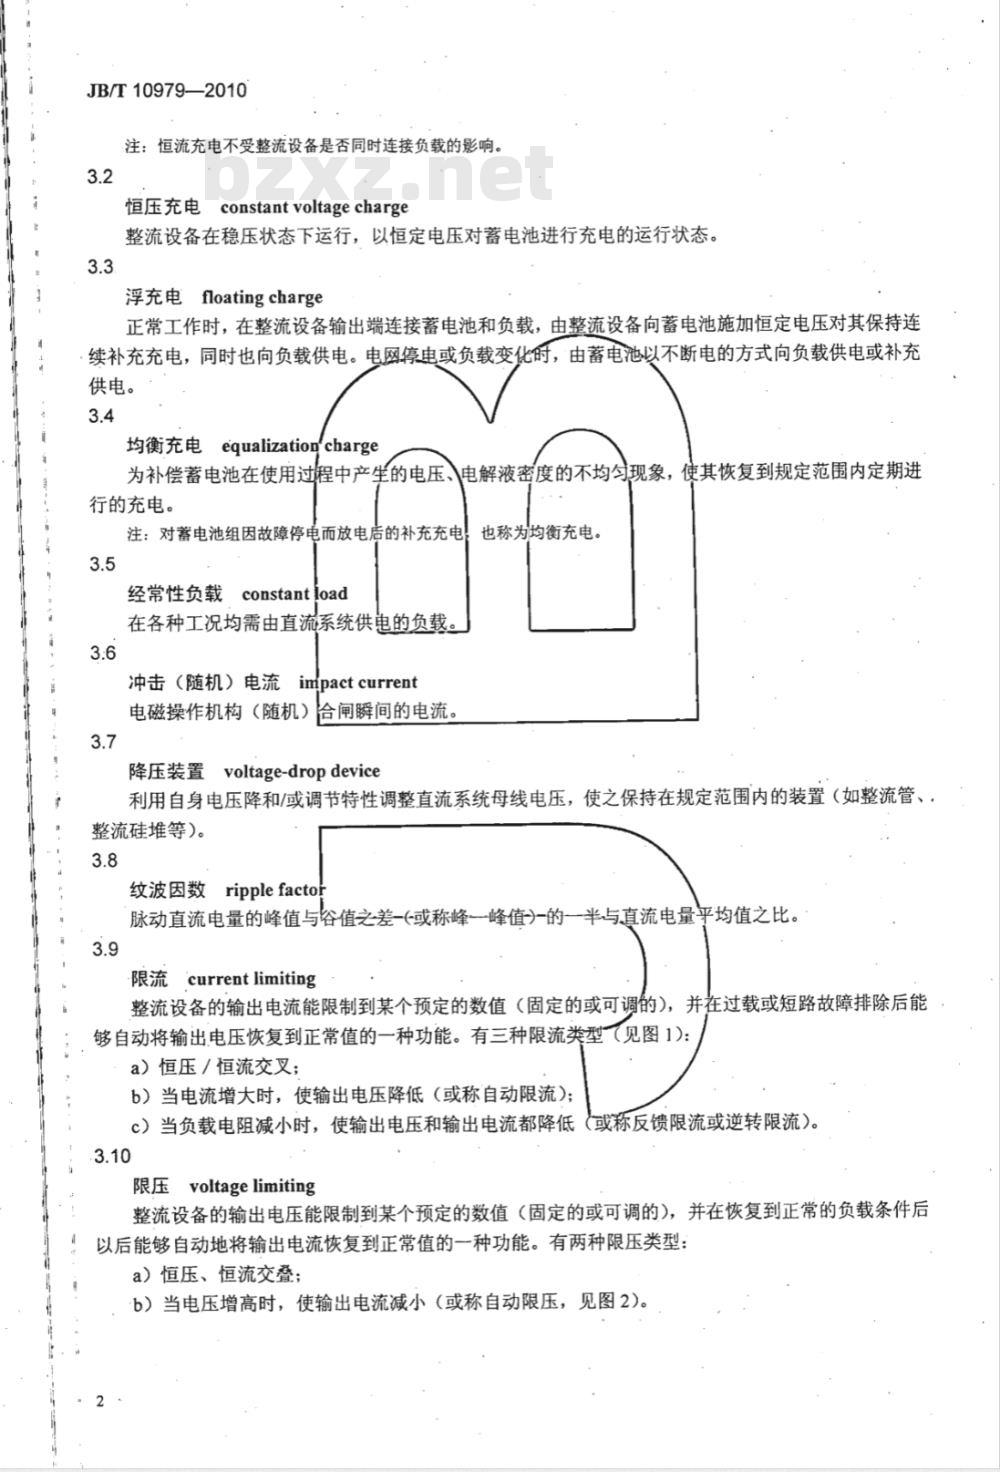 JB/T 10979—2010
注：恒流充电不受整流设备是否同时连接负载的影响。
bzxz.net
3.2
恒压充电 constant voltage charge
整流设备在稳压状态下运行，以恒定电压对蓄电池进行充电的运行状态。
3.3
浮充电 floating charge
正常工作时，在整流设备输出端连接蓄电池和负载，由整流设备向蓄电池施加恒定电压对其保持连
续补充充电，同时也向负载供电。电网停电或负载变化时，由蓄电池以不断电的方式向负载供电或补充
供电。
3.4
均衡充电 equalization charge
为补偿蓄电池在使用过程中产生的电压、电解液密度的不均匀现象，使其恢复到规定范围内定期进
行的充电。
注：对蓄电池组因故障停电而放电后的补充充电，也称为均衡充电。
3.5
经常性负载 constant load
在各种工况均需由直流系统供电的负载。
3.6
冲击（随机）电流 impact current
电磁操作机构（随机）合闸瞬间的电流。
3.7
降压装置 voltage-drop device
利用自身电压降和/或调节特性调整直流系统母线电压，使之保持在规定范围内的装置（如整流管、
整流硅堆等）。
3.8
纹波因数 ripple factor
脉动直流电量的峰值与谷值之差（或称峰—峰值）的一半与直流电量平均值之比。
3.9
限流 current limiting
整流设备的输出电流能限制到某个预定的数值（固定的或可调的），并在过载或短路故障排除后能
够自动将输出电压恢复到正常值的一种功能。有三种限流类型（见图 1）：
a）恒压 / 恒流交叉；
b）当电流增大时，使输出电压降低（或称自动限流）；
c）当负载电阻减小时，使输出电压和输出电流都降低（或称反馈限流或逆转限流）。
3.10
限压 voltage limiting
整流设备的输出电压能限制到某个预定的数值（固定的或可调的），并在恢复到正常的负载条件后
以后能够自动地将输出电流恢复到正常值的一种功能。有两种限压类型：
a）恒压、恒流交叠；
b）当电压增高时，使输出电流减小（或称自动限压，见图 2）。
2